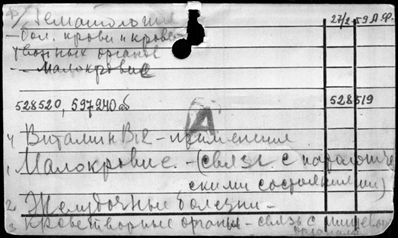 Гематология 27/2 59 А.Ф.
- бол. крови и крове-
творных органов
- Малокровие
528520, 597240б 528519
Д
4 Витамин B12 - применение
1 Малокровие. - (связь с патологиче
скими состояниями)
2 Желудочные болезни -
3 кроветворные органы - связь с пищевой